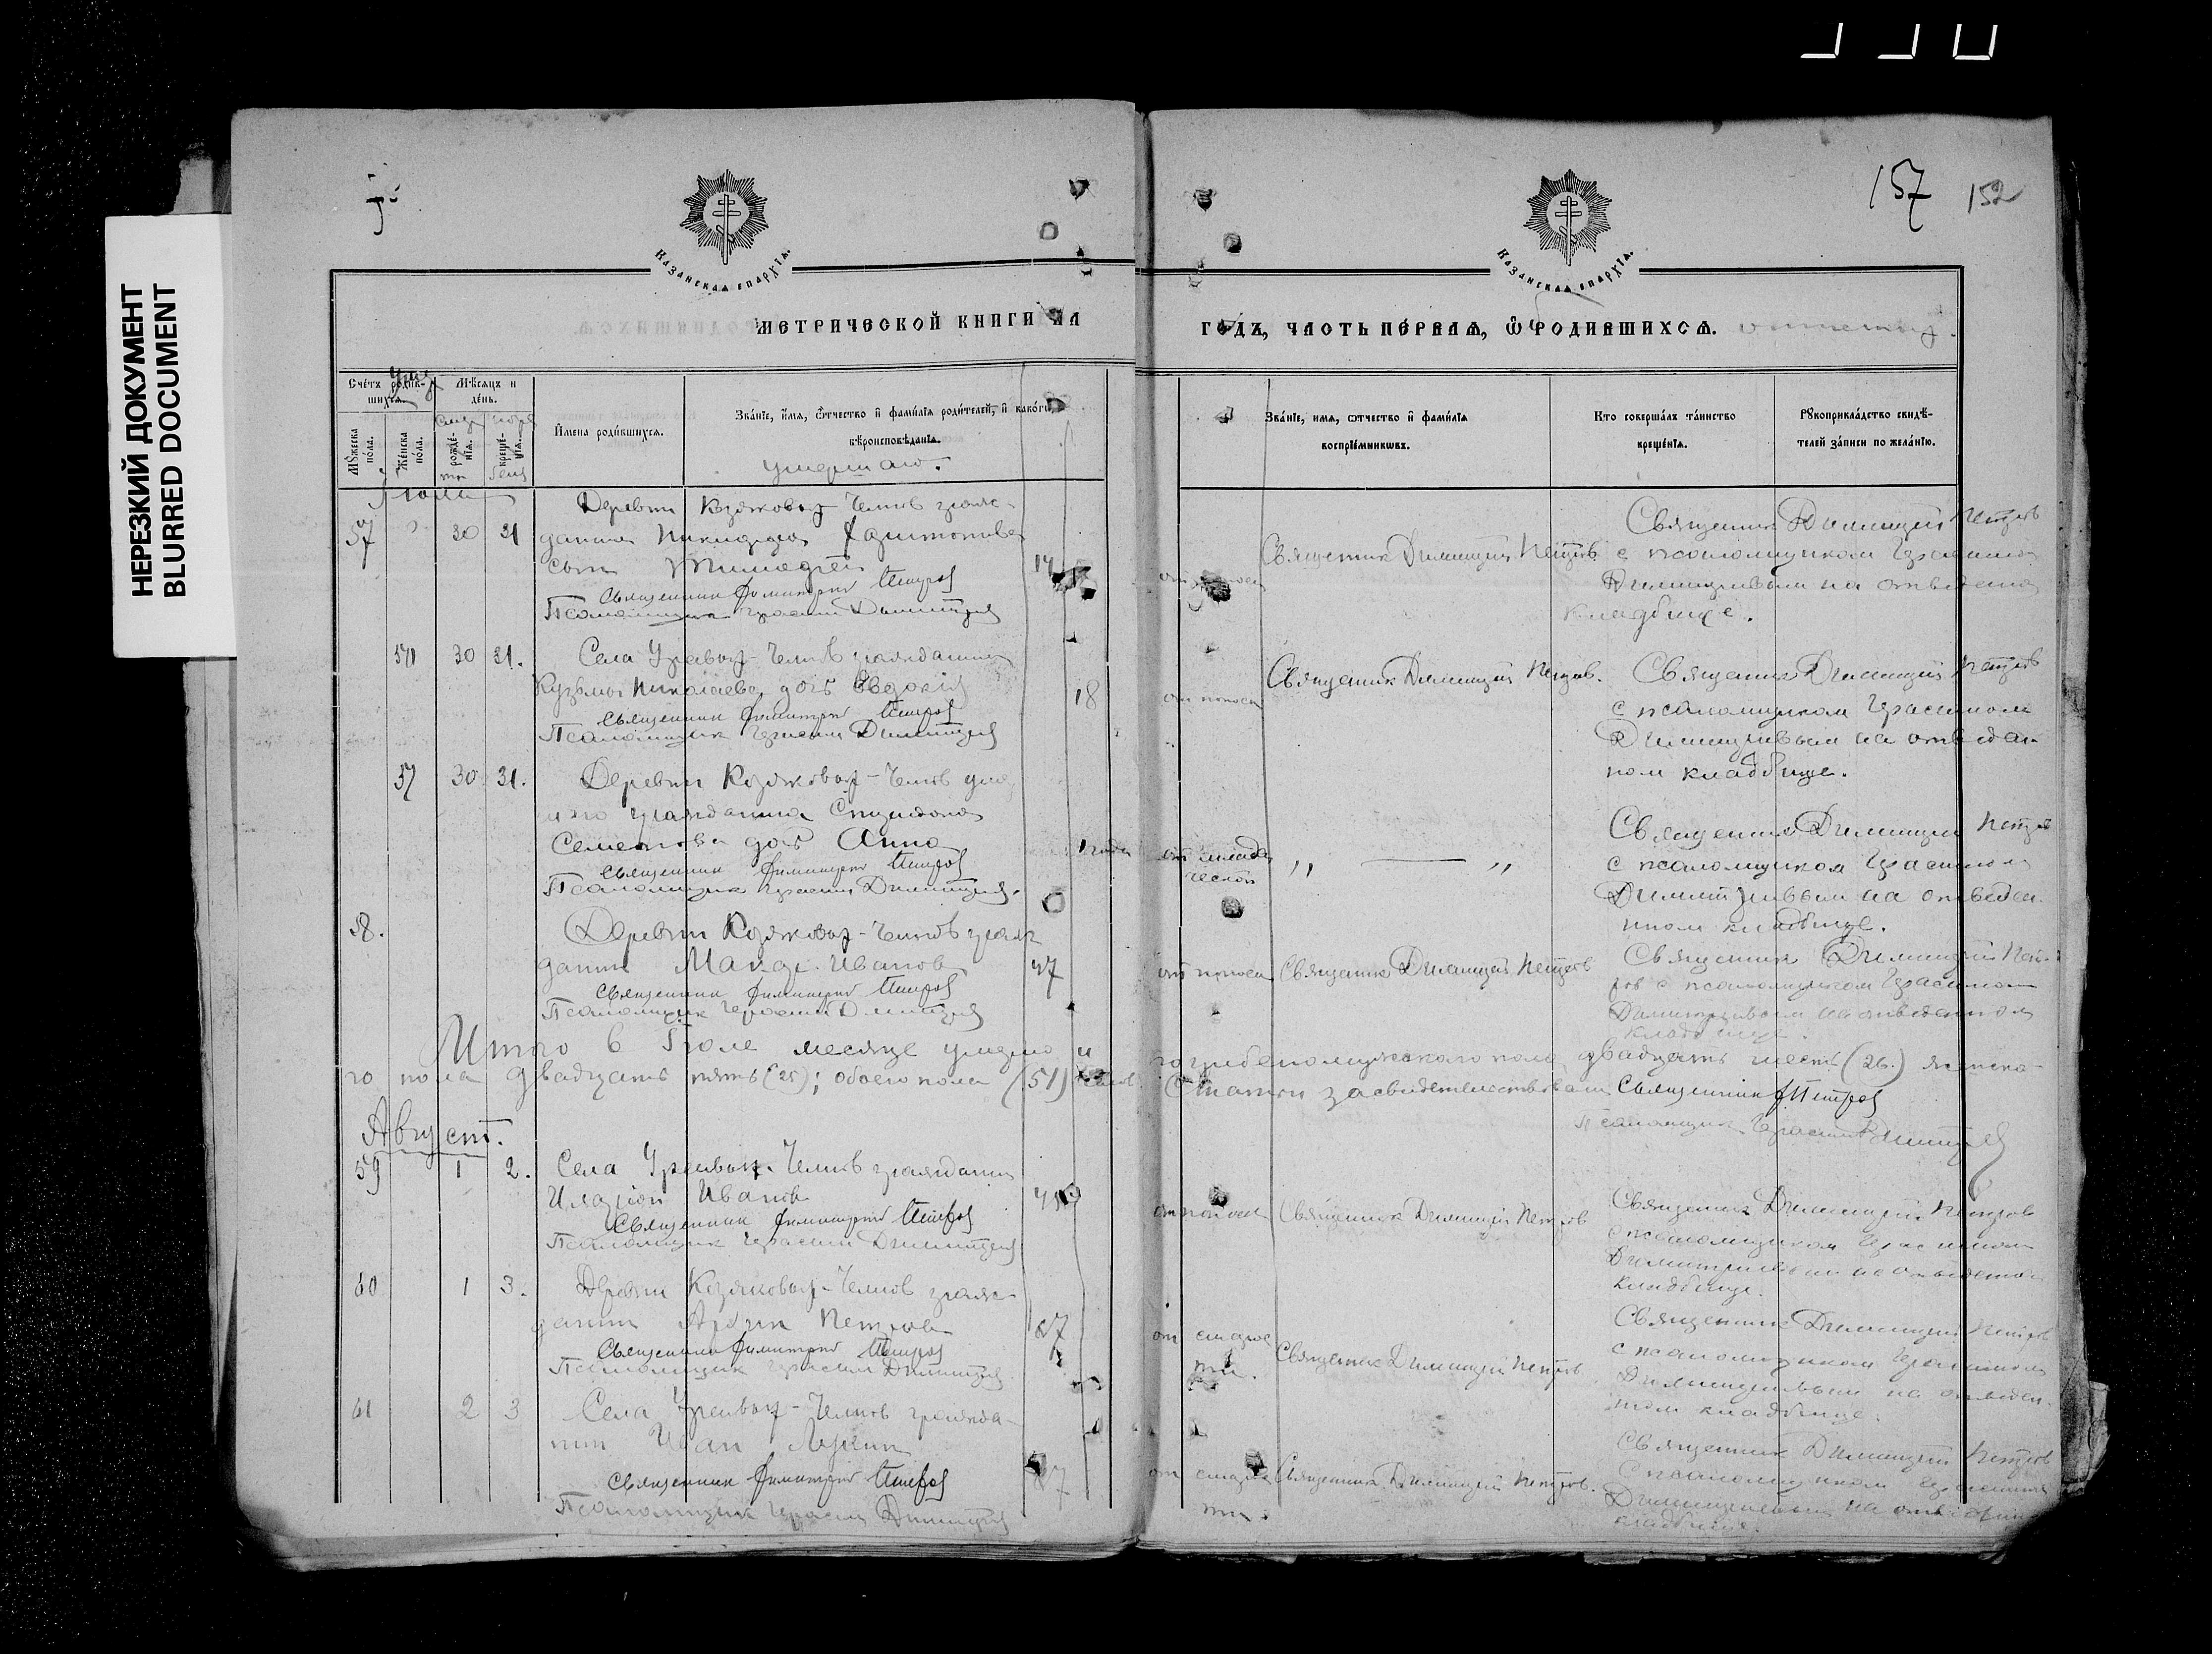 НЕРЕЗКИЙ ДОКУМЕНТ
BLURRED DOCUMENT
157 152
Казанская епархія.
Казанская епархія.
МЕТРИЧЕСКОЙ КНИГИ НА
ГОДЪ, ЧАСТЬ ПЕРВАЯ, Ѡ РОДИВШИХСЯ.
Счётъ родив-
шихся.
Мѣсяцъ и
день.
Мужеска
пола.
Женска
пола.
рожде-
нія.
креще-
нія.
Имена родившихся.
Званіе, имя, отчество и фамилія родителей, и какого
вѣроисповѣданія.
умершаго.
Званіе, имя, отчество и фамилія
воспріемниковъ.
Кто совершалъ таинство
крещенія.
Рукоприкладство свидѣ-
телей записи по желанію.
Июля
57 30 31
Деревни Козяковых-Челнов граж-
данина Харитонова
сын Тимофей
Священник Димитрий Петров
Псаломщик Герасим Димитриев
Священник Димитрий Петров
Священник Димитрий Петров
с псаломщиком Герасимом
Димитриевым на отведенном
кладбище.
30 31.
Села Уреевых-Челнов гражданина
Кузьмы Николаева дочь Евдокія
18
от поноса
Священник Димитрий Петров
Псаломщик Герасим Димитриев
Священник Димитрий Петров.
Священник Димитрий Петров
с псаломщиком Герасимом
Димитриевым на отведен-
ном кладбище.
57 30 31.
Деревни Козяковых-Челнов
гражданина Спиридона
Семенова дочь Анна
1 года
от младен
ческой
Священник Димитрий Петров
Псаломщик Герасим Димитриев.
„ — „
Священник Димитрий Петров
с псаломщиком Герасимом
Димитриевым на отведен-
ном кладбище.
58.
Деревни Козяковых-Челнов граж
данин Иванов
47
от поноса
Священник Димитрий Петров
Священник Димитрий Петров
Псаломщик Герасим Димитриев
Священник Димитрий Пет-
ров с псаломщиком Герасимом
Димитриевым на отведенном
кладбище.
Итого в Июле месяце умерло и
погребено мужского пола двадцать шесть (26.) женско-
го пола двадцать пять (25); обоего пола (51)
засвидетельствовали Священник Петров
Псаломщик Герасим Димитриев
Август.
59 1 2.
Села Уреевых-Челнов гражданин
Иларіон Иванов
от поноса
Священник Димитрий Петров
Псаломщик Герасим Димитриев
Священник Димитрий Петров
Священник Димитрий Петров
с псаломщиком Герасимом
Димитриевым на отведенном
кладбище.
60 1 3.
Деревни Козяковых-Челнов граж-
данин Петров
87
от старос
ти.
Священник Димитрий Петров
Псаломщик Герасим Димитриев
Священник Димитрий Петров
Священник Димитрий Петров
с псаломщиком Герасимом
Димитриевым на отведен-
ном кладбище.
61 2 3
Села Уреевых-Челнов гражда-
нин Иван
от старос
ти.
Священник Димитрий Петров
Псаломщик Герасим Димитриев
Священник Димитрий Петров.
Священник Димитрий Петров
с псаломщиком Герасимом
Димитриевым на отведенном
кладбище.